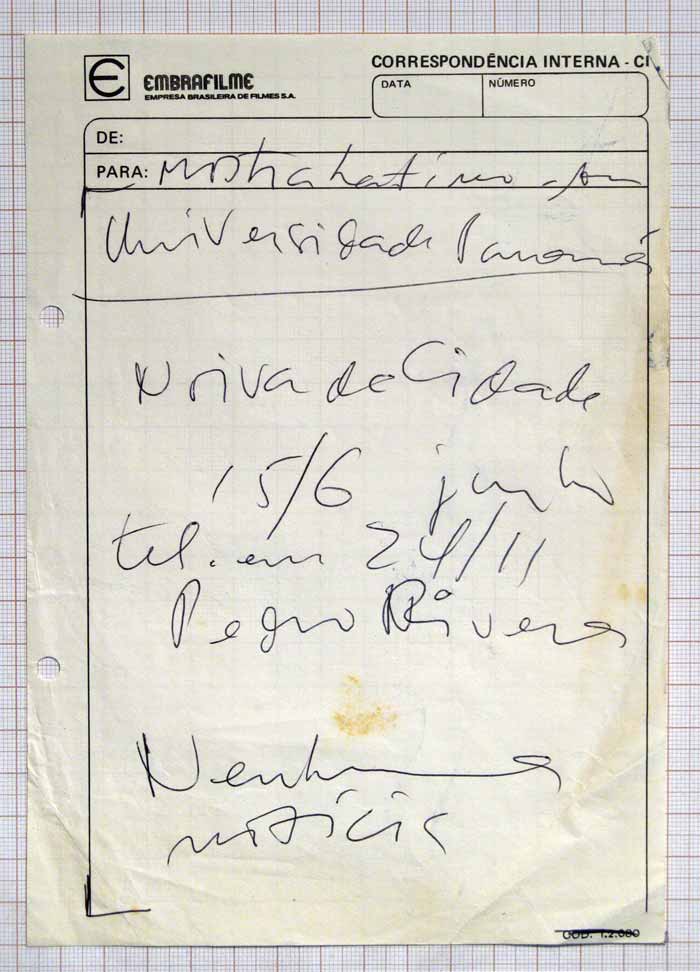 EMBRAFILME
EMPRESA BRASILEIRA DE FILMES S.A.
CORRESPONDÊNCIA INTERNA - CI
DATA
NÚMERO
DE:
PARA: Mostra Latino
Universidade Panamá
Noiva da Cidade
15/6 junho
tel. em 24/11
Pedro Rivera
Nenhuma
notícia
COD. 1.2.080